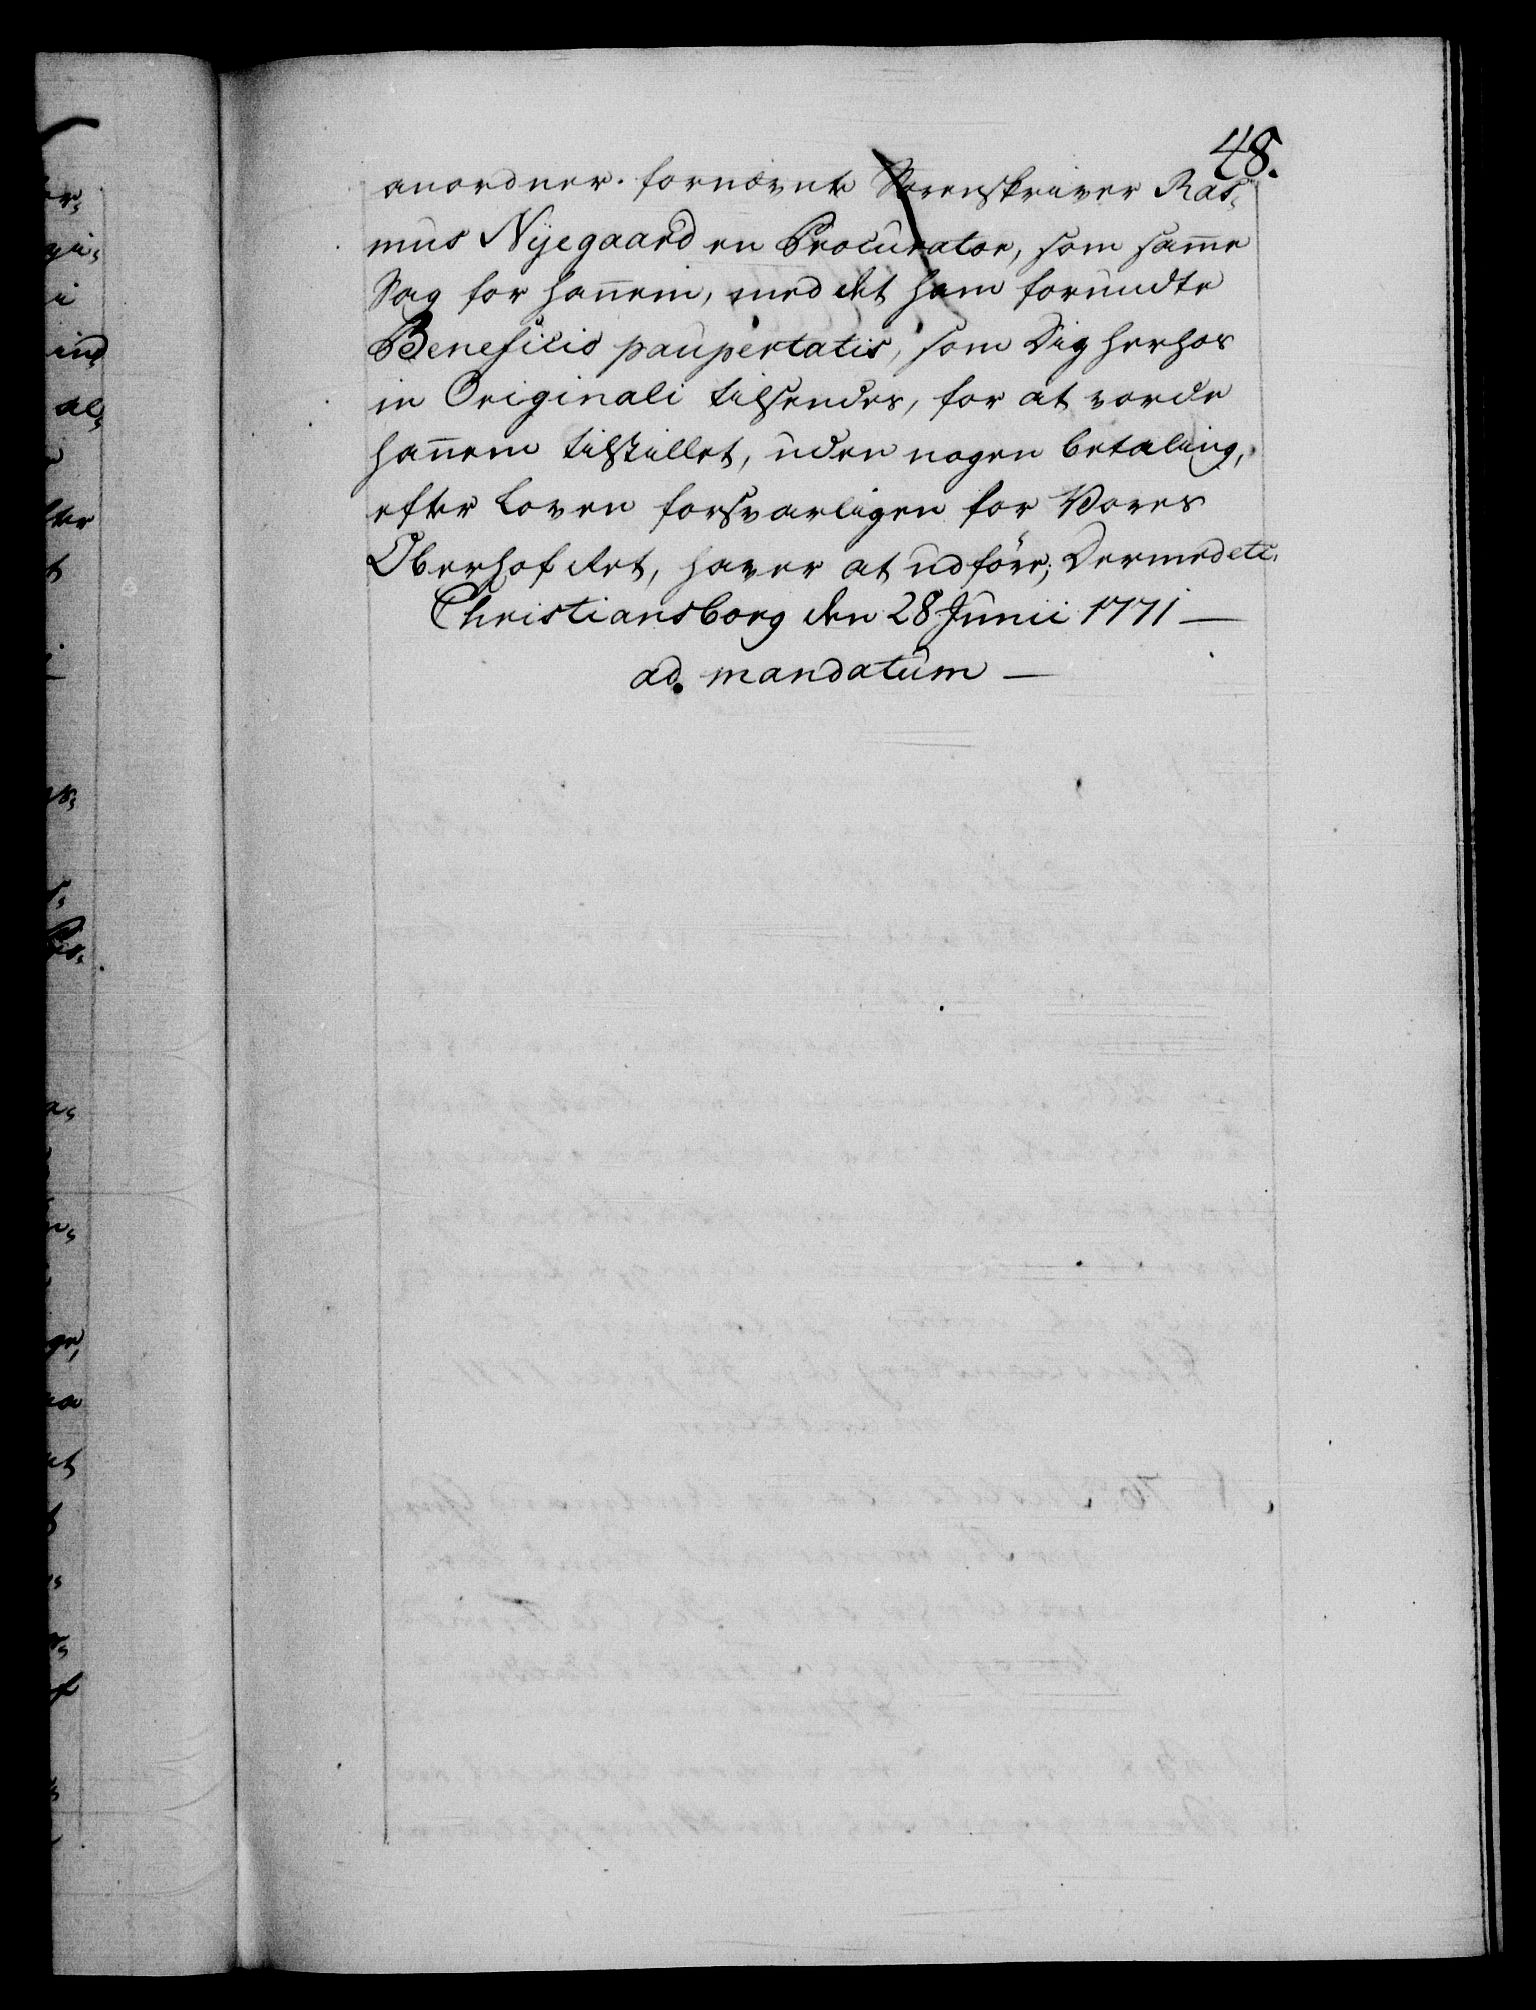 48.
anordner fornævnte Sorenskriver Ras¬
mus Nyegaard en Procurator, som samme
Sag for hannem, med det ham forundte
Beneficio paupertatis, som Dig herhos
in Originali tilsendes, for at vorde
hannem tilstillet, uden nogen betaling,
efter Loven forsvarligen for Vores
Oberhof Ret, haver at udføre; Dermed etc.
Christiansborg den 28 Junii 1771 —
ad mandatum —